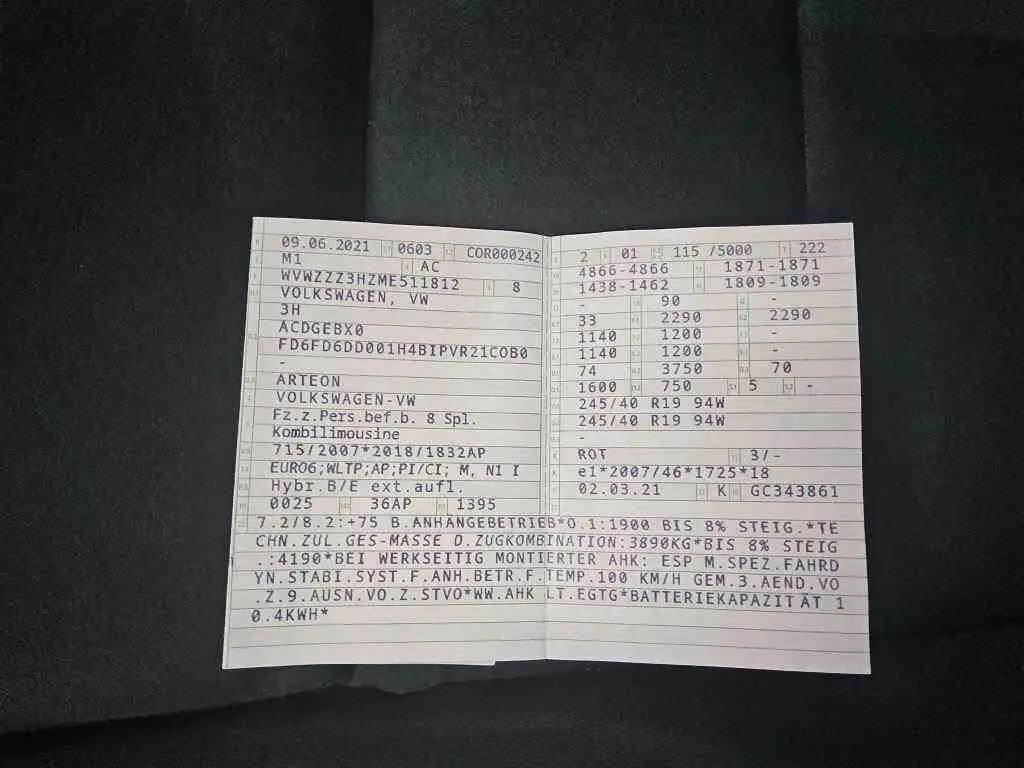 09.06.2021 0603 COR000242
M1 AC
WVWZZZ3HZME511812 8
VOLKSWAGEN, VW
3H
ACDGEBX0
FD6FD6DD001H4BIPVR21COB0
-
ARTEON
VOLKSWAGEN-VW
Fz.z.Pers.bef.b. 8 Spl.
Kombilimousine
715/2007*2018/1832AP
EURO6;WLTP;AP;PI/CI; M, N1 I
Hybr.B/E ext.aufl.
0025 36AP 1395
2 01 115 /5000 222
4866-4866 1871-1871
1438-1462 1809-1809
- 90 -
33 2290 2290
1140 1200 -
1140 1200 -
74 3750 70
1600 750 5 -
245/40 R19 94W
245/40 R19 94W
-
ROT 3/-
e1*2007/46*1725*18
02.03.21 K GC343861
7.2/8.2:+75 B.ANHÄNGEBETRIEB*O.1:1900 BIS 8% STEIG.*TE
CHN.ZUL.GES-MASSE D.ZUGKOMBINATION:3890KG*BIS 8% STEIG
.:4190*BEI WERKSEITIG MONTIERTER AHK: ESP M.SPEZ.FAHRD
YN.STABI.SYST.F.ANH.BETR.F.TEMP.100 KM/H GEM.3.AEND.VO
.Z.9.AUSN.VO.Z.STVO*WW.AHK LT.EGTG*BATTERIEKAPAZITÄT 1
0.4KWH*